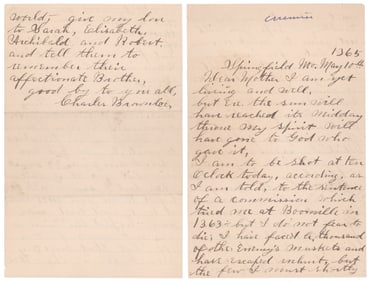 world; give my love
to Sarah, Elisabeth,
Archibald and Robert.
and tell them to
remember their
affectionate Brother,
good by to you all,
Charles
1865
Springfield Mo. May 10th
Dear Mother I am yet
living and well,
but Ere the sun will
have reached its Midday
throne my spirit will
have gone to God who
gave it,
I am to be shot at ten
O'clock today, according, as
I am told, to the sentence
of a commission which
tried me at Boonville in
1863 - but I do not fear to
die; I have faced a thousand
of the Enemy's Muskets and
have escaped but
the few I must shortly